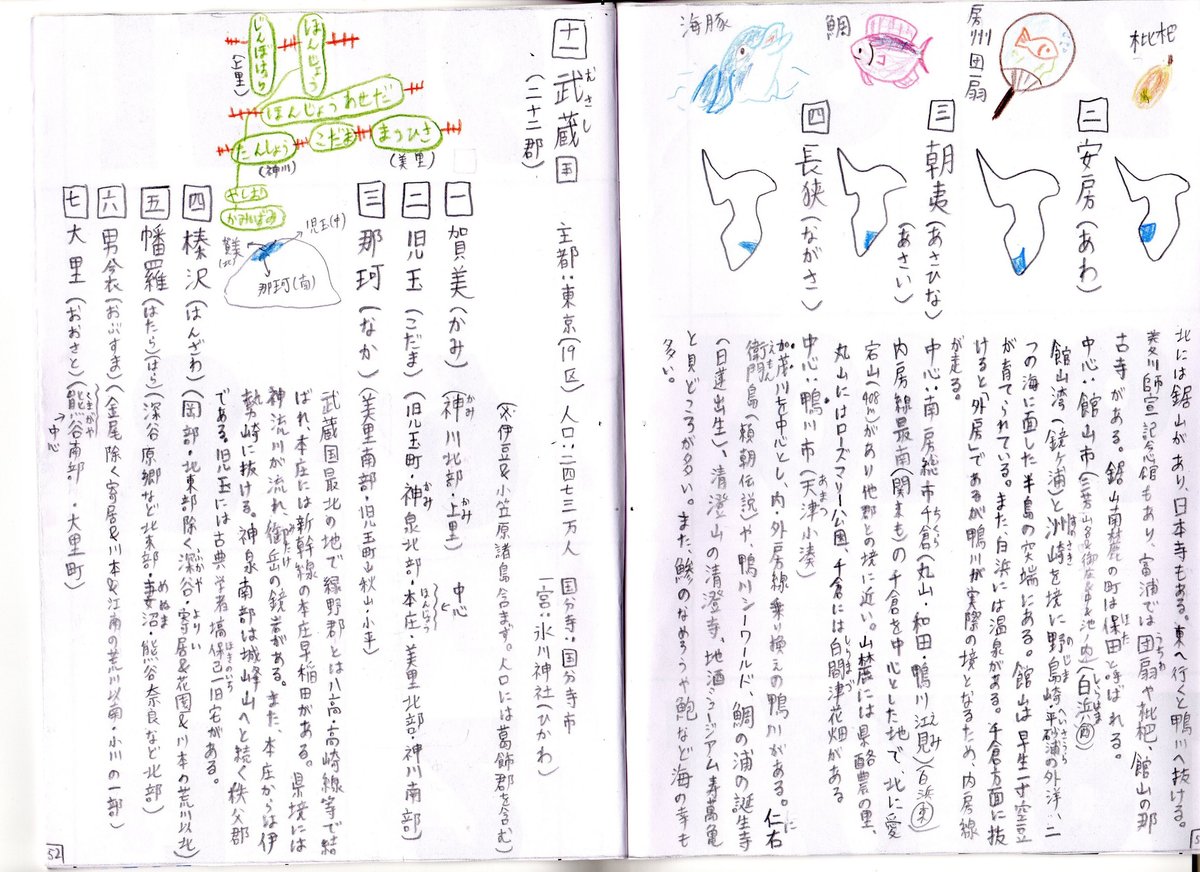 枇杷
房州団扇
鯛
海豚
北には鋸山があり、日本寺もある。東へ行くと鴨川へ抜ける。
菱川師宣記念館もあり、富浦では団扇や枇杷、館山の那
古寺がある。鋸山南麓の町は保田と呼ばれる。
二 安房(あわ)
中心:館山市
館山湾(鏡ヶ浦)と洲崎を境に野島崎、平砂浦の外洋、二
つの海に面した半島の突端にある。館山は早生一寸空豆
が育てられている。また白浜には温泉がある。千倉方面に抜
けると「外房」であるが鴨川が実際の境となるため、内房線
が走る。
三 朝夷(あさひな)
(あさい)
中心:南房総市千倉・丸山・和田・鴨川江見(白浜東)
内房線最南(関東も)の千倉を中心とした地で、北に愛
宕山(408m)があり他郡との境に近い。山麓には県酪農の里、
丸山にはローズマリー公園、千倉には白間津花畑がある
四 長狭(ながさ)
中心:鴨川市(天津小湊)
加茂川を中心とし、内・外房線乗り換えの鴨川がある。仁右
衛門島(頼朝伝説)や、鴨川シーワールド、鯛の浦の誕生寺
(日蓮出生)、清澄山の清澄寺、地酒ミュージアム寿萬亀
と見どころが多い。また、鯵のなめろうや鮑など海の幸も
多い。
十一 武蔵国
むさし
(二十二郡)
主都:東京(19区) 人口:二四七三万人 国分寺・国分寺市
一宮:氷川神社(ひかわ)
(※伊豆&小笠原諸島含まず。人口には葛飾郡を含む)
じんぼはら
(上里)
ほんじょう
ほんじょうわせだ
たんしょう
(神川)
こだま
まつひさ
(美里)
一 賀美(かみ) (神川北部・上里)
中心
二 児玉(こだま) (旧児玉町・神泉北部・本庄・美里北部・神川南部)
三 那珂(なか) (美里南部・旧児玉町秋山・小平)
児玉(中)
賀美(北)
那珂(南)
武蔵国最北の地で緑野郡とは八高・高崎線等で結
ばれ、本庄には新幹線の本庄早稲田がある。県境には
神流川が流れ、御岳の鏡岩がある。また、本庄からは伊
勢崎に抜ける。神泉南部は城峰山へと続く秩父郡
である。旧児玉には古典学者塙保己一旧宅がある。
四 榛沢(はんざわ) (岡部・北東部除く深谷・寄居&花園&川本の荒川以北)
五 幡羅(はたら)(はら) (深谷原郷など北東部・妻沼・熊谷奈良など北部)
六 男衾(おぶすま) (金尾除く寄居&川本&江南の荒川以南・小川の一部)
七 大里(おおさと) (熊谷南部・大里町)
中心
52